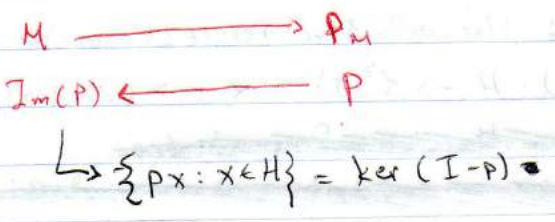 M ⟶ P_M
Im(P) ⟵ P
↳ {px : x ∈ H} = ker (I-p)